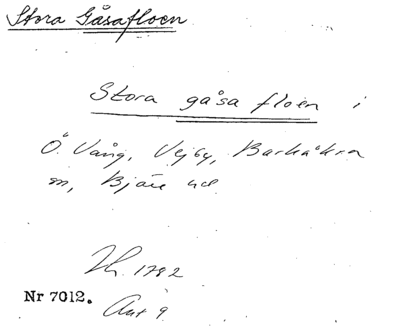 Stora Gåsafloen
Stora gåsa floen i
Ö. Vång, Vejby, Barkåkra
sn, Bjäre hd
1782
Nr 7012.
Akt 9